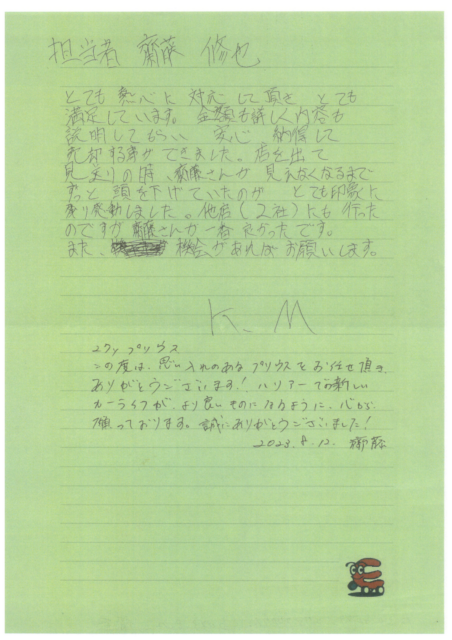 担当者 齋藤 修也
とても 熱心に 対応して頂き とても
満足しています。金額も詳しく内容も
説明してもらい 安心 納得して
売却する事ができました。店を出て
見送りの時、齋藤さんが 見えなくなるまで
ずっと 頭を下げていたのが とても印象に
残り感動しました。他店(2社)にも 行った
のですが 齋藤さんが一番 良かったです。
また、機会があれば お願いします。
K.M
プリウス
この度は、思い入れのある プリウスを お任せ頂き
ありがとうございます! ハリアーでの新しい
カーライフが、より良いものになるように、心から
願っております。誠にありがとうございました!
2023.8.12. 齋藤